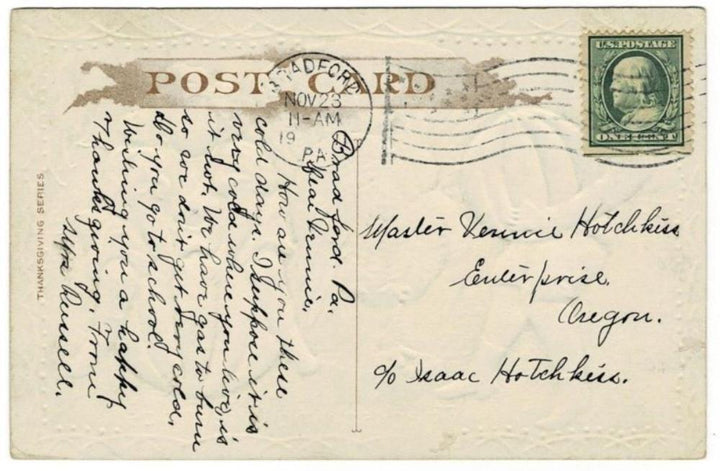 POST CARD
THANKSGIVING SERIES
BRADFORD
NOV 23
11-AM
19
PA.
U.S. POSTAGE
ONE CENT
Bradford. Pa.
Dear Vennie,
How are you these
cold days. I suppose it is
very cold where you live, is
it not. We have gas to burn
so we don't get very cold.
Do you go to school.
Wishing you a happy
Thanksgiving. From
Mrs Russell.
Master Vennie Hotchkiss
Enterprise.
Oregon.
c/o Isaac Hotchkiss.